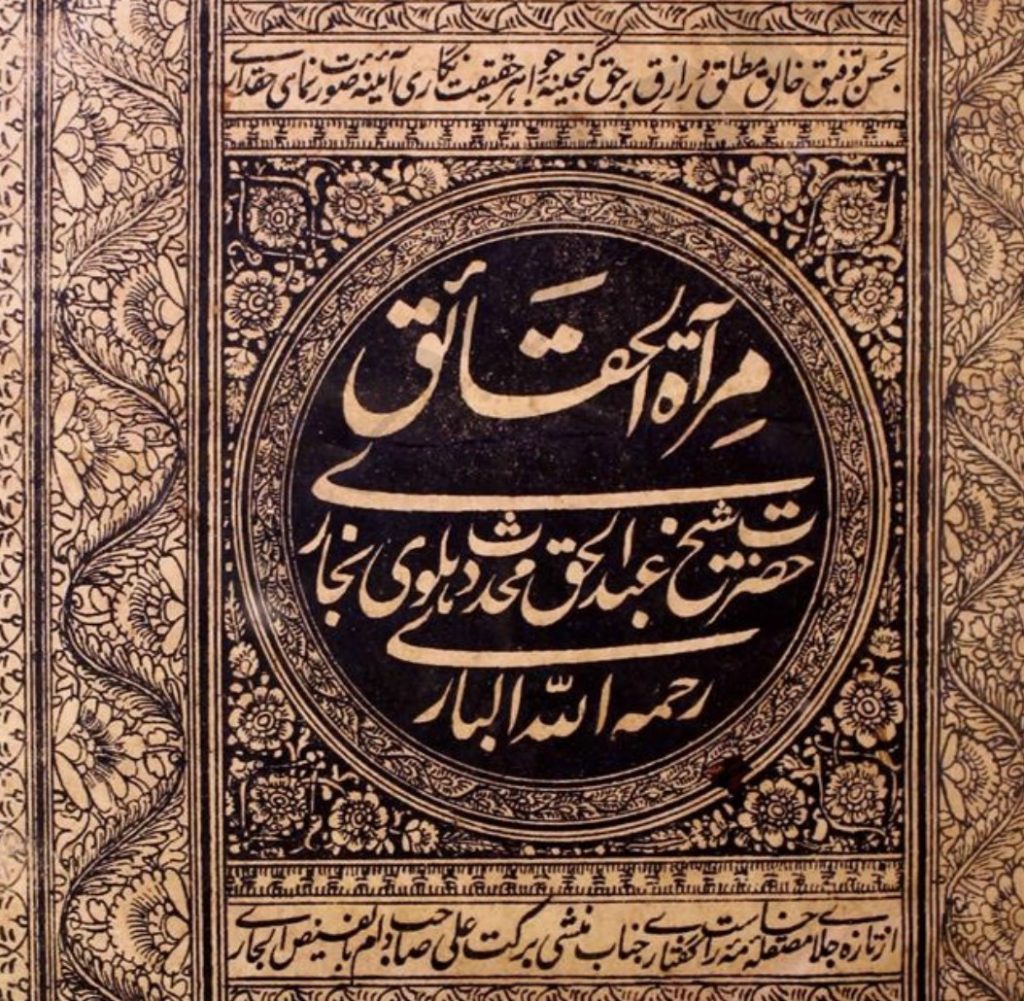 بحُسن توفیق خالق مطلق و رازق برحق گنجینهٔ جواهر حقیقت نگاری آئینهٔ صورت نمای حقداری
مِرآة الحقَائق
حضرت شیخ عبدالحق محدث دہلوی بخاری
رحمہ اللہ الباری
از تازہ جلای مصقلهٔ راست گفتاری جناب منشی برکت علی صاحب دام بالفیض الجاری